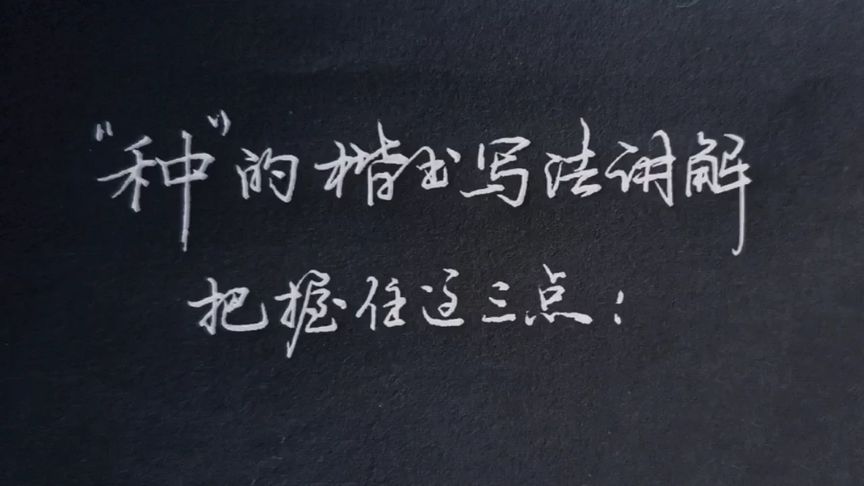 “种”的楷书写法讲解
把握住这三点：